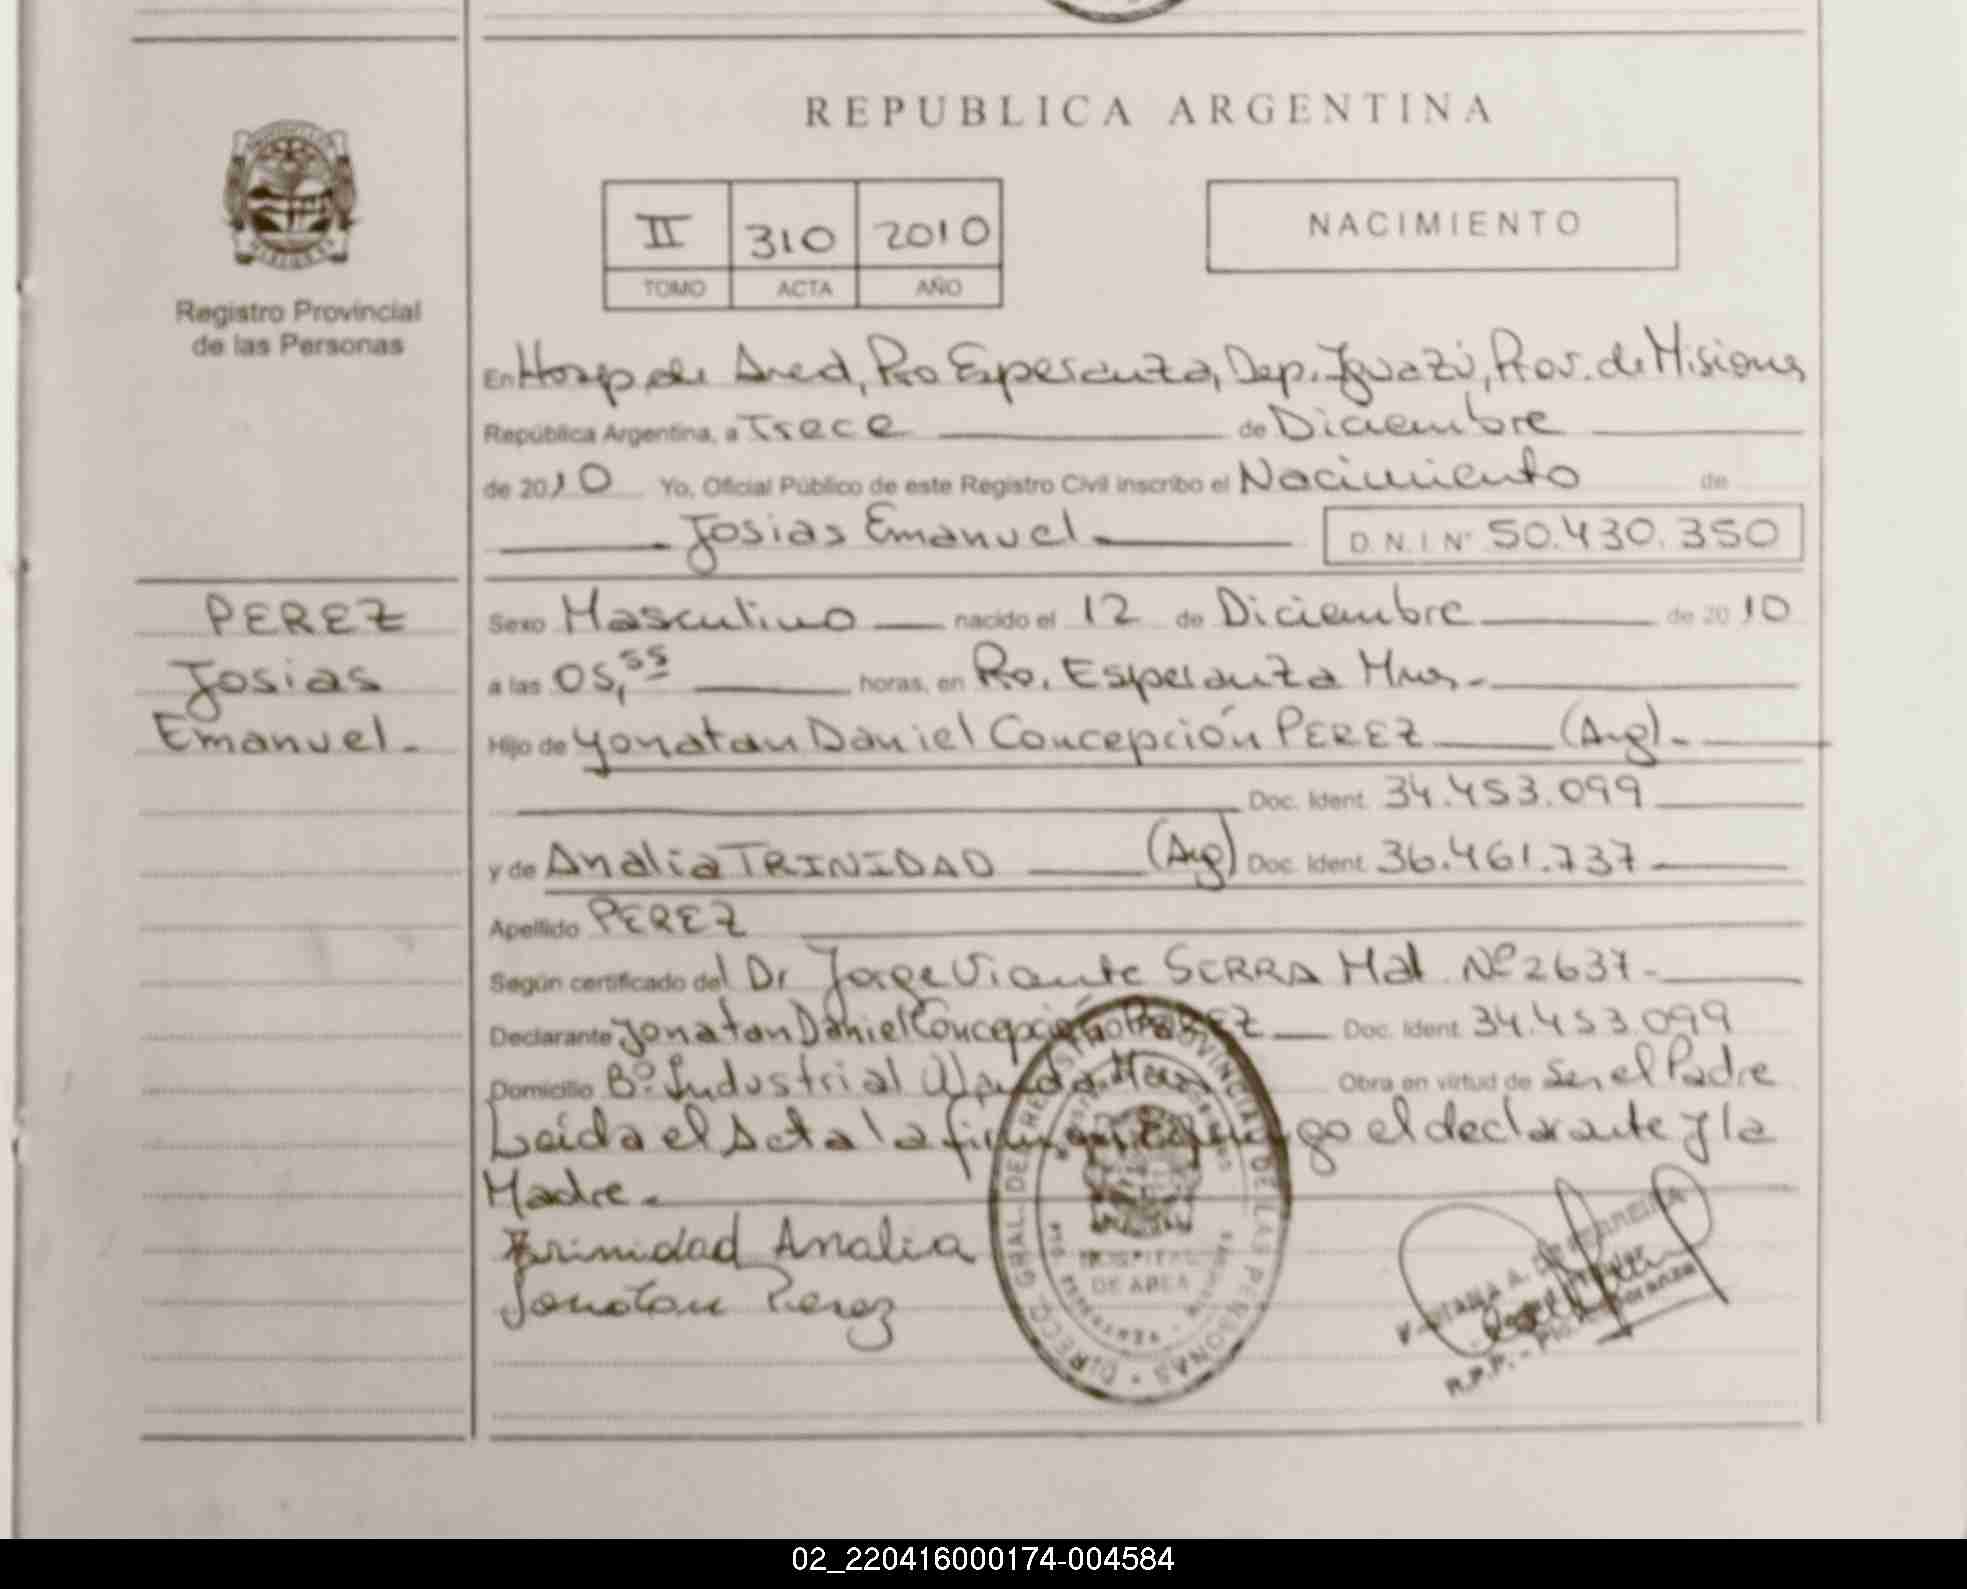 REPUBLICA ARGENTINA
II 310 2010
TOMO ACTA AÑO
NACIMIENTO
Registro Provincial
de las Personas
En Hosp. de Area, Pto Esperanza, Dep. Iguazú, Prov. de Misiones
República Argentina, a Trece de Diciembre
de 2010 Yo, Oficial Público de este Registro Civil inscribo el Nacimiento de
Josias Emanuel D.N.I N° 50.430.350
PEREZ
Josias
Emanuel.
Sexo Masculino nacido el 12 de Diciembre de 2010
a las 05,55 horas, en Pto. Esperanza Mnes.
Hijo de Yonatan Daniel Concepción PEREZ (Arg).
Doc. Ident. 34.453.099
y de Analia TRINIDAD (Arg) Doc. Ident. 36.461.737
Apellido PEREZ
Según certificado del Dr Jorge Vicente SERRA Mat. Nº 2637
Declarante Yonatan Daniel Concepción PEREZ Doc. Ident. 34.453.099
Domicilio Bº. Industrial Obra en virtud de Ser el Padre
Leida el Acta la go el declarante y la
Madre.
Trinidad Analia
Jonatan Perez
DIRECC. GRAL. DE REGISTRO PROVINCIAL DE LAS PERSONAS
HOSPITAL
DE AREA
R.P.P. - Pto. Esperanza
02_220416000174-004584